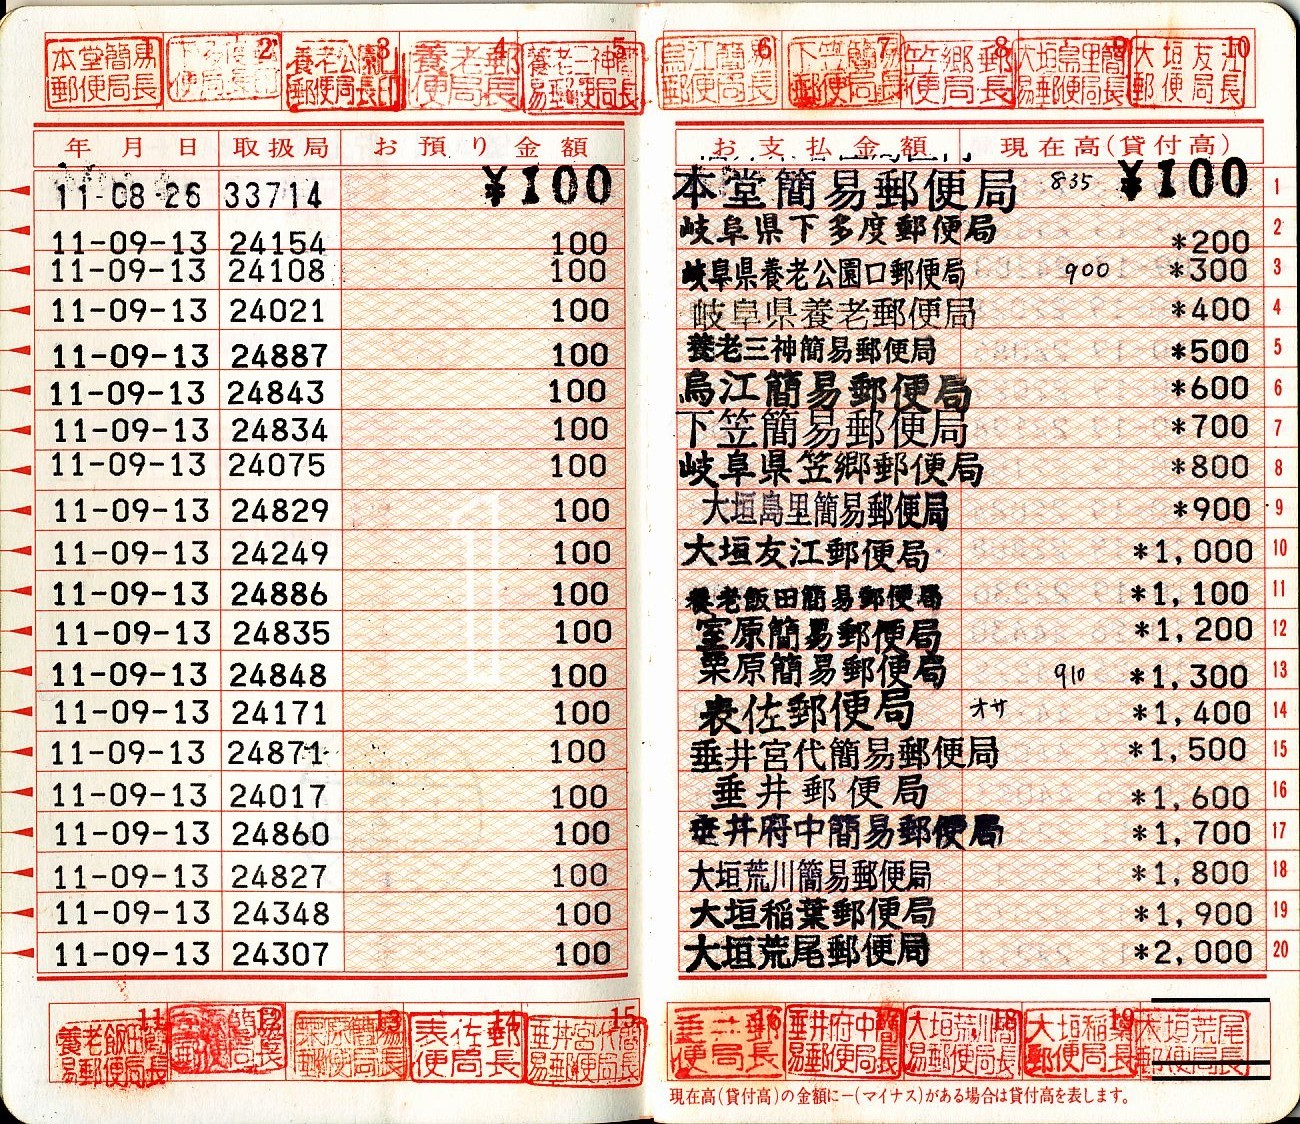 本堂簡易郵便局長 1
2
養老公園口郵便局長 3
養老郵便局長 4
養老三神簡易郵便局長 5
烏江簡易郵便局長 6
下笠簡易郵便局長 7
笠郷郵便局長 8
大垣島里簡易郵便局長 9
大垣友江郵便局長 10
年月日 取扱局 お預り金額 お支払金額 現在高(貸付高)
11-08-26 33714 ¥100 本堂簡易郵便局 835 ¥100 1
11-09-13 24154 100 岐阜県下多度郵便局 *200 2
11-09-13 24108 100 岐阜県養老公園口郵便局 900 *300 3
11-09-13 24021 100 岐阜県養老郵便局 *400 4
11-09-13 24887 100 養老三神簡易郵便局 *500 5
11-09-13 24843 100 烏江簡易郵便局 *600 6
11-09-13 24834 100 下笠簡易郵便局 *700 7
11-09-13 24075 100 岐阜県笠郷郵便局 *800 8
11-09-13 24829 100 大垣島里簡易郵便局 *900 9
11-09-13 24249 100 大垣友江郵便局 *1,000 10
11-09-13 24886 100 養老飯田簡易郵便局 *1,100 11
11-09-13 24835 100 室原簡易郵便局 *1,200 12
11-09-13 24848 100 栗原簡易郵便局 910 *1,300 13
11-09-13 24171 100 表佐郵便局 オサ *1,400 14
11-09-13 24871 100 垂井宮代簡易郵便局 *1,500 15
11-09-13 24017 100 垂井郵便局 *1,600 16
11-09-13 24860 100 垂井府中簡易郵便局 *1,700 17
11-09-13 24827 100 大垣荒川簡易郵便局 *1,800 18
11-09-13 24348 100 大垣稲葉郵便局 *1,900 19
11-09-13 24307 100 大垣荒尾郵便局 *2,000 20
養老飯田簡易郵便局長 11
12
栗原簡易郵便局長 13
表佐郵便局長 14
垂井宮代簡易郵便局長 15
垂井郵便局長 16
垂井府中簡易郵便局長 17
大垣荒川簡易郵便局長 18
大垣稲葉郵便局長 19
大垣荒尾郵便局長
現在高(貸付高)の金額に−(マイナス)がある場合は貸付高を表します。